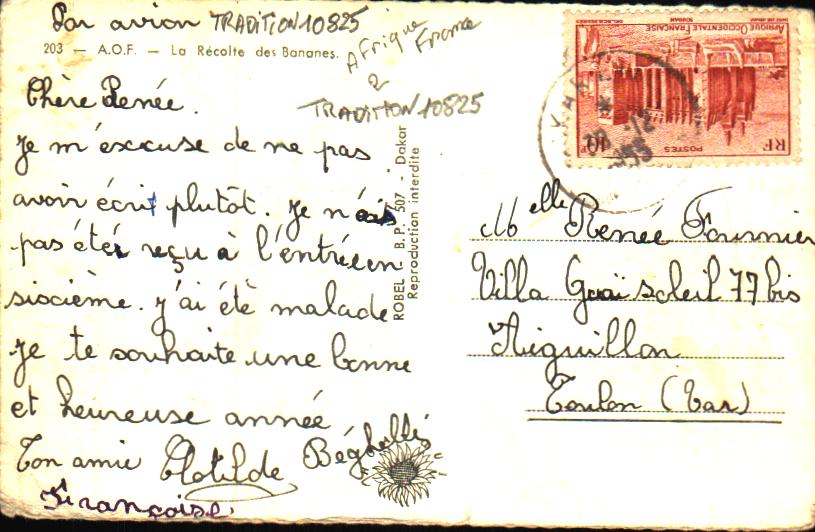 Par avion TRADITION10825
203 — A.O.F. — La Récolte des Bananes.
Afrique
France
2
TRADITION10825
Chère Renée.
Je m'excuse de ne pas
avoir écrit plutôt. Je n'ai
pas étér reçu à l'entrée en
siocième. J'ai été malade
Je te souhaite une bonne
et heureuse année
Ton amie Clotilde Béghelli
Françoise
ROBEL - B.P. 507 - Dakar
Reproduction interdite
AFRIQUE OCCIDENTALE FRANÇAISE
SOUDAN
POSTES
RF
10F
Melle Renée Fournier
Villa Gai soleil 77 bis
Aiguillon
Toulon (Var)